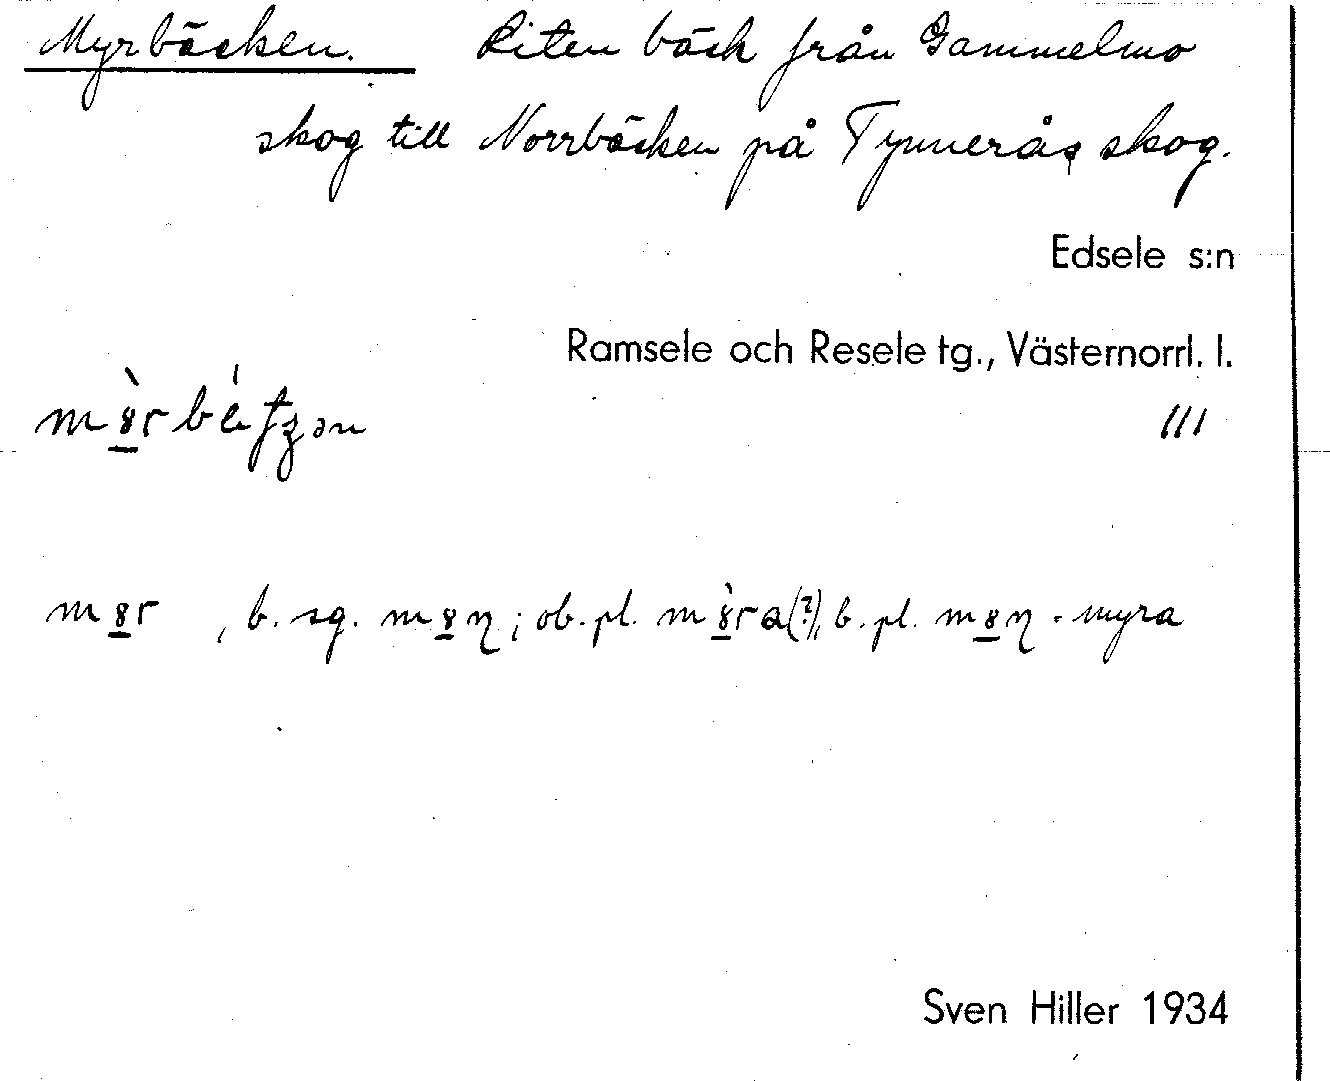 Myrbäcken. Liten bäck från Gammelmo
skog till Norrbäcken på Tynnerås skog.
Edsele s:n
Ramsele och Resele tg., Västernorrl. l.
III
, b. sg. ; ob. pl. (?), b. pl. - myra
Sven Hiller 1934